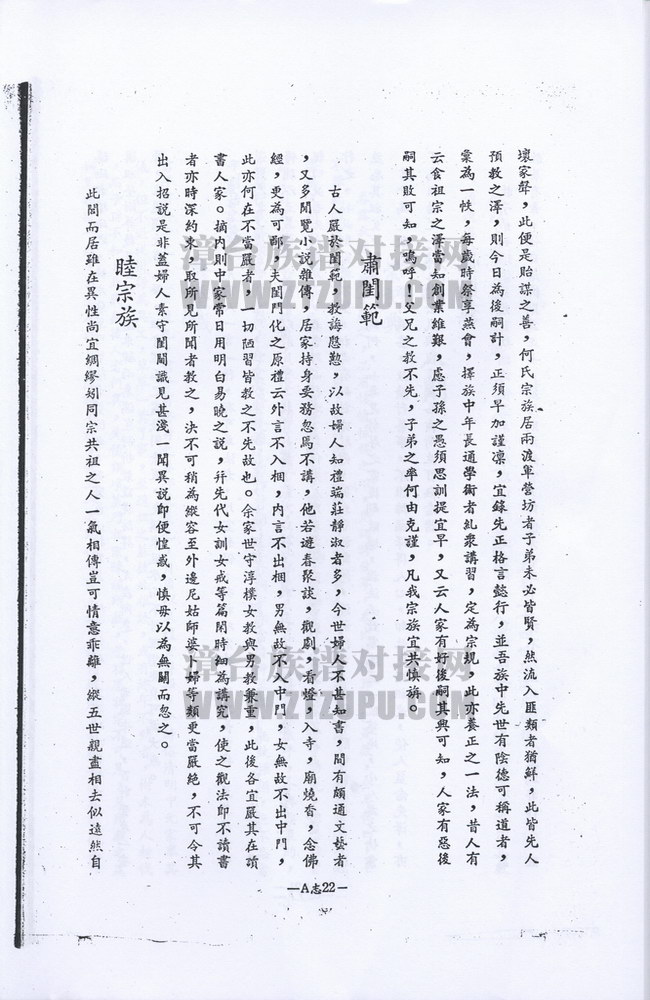 壞家聲，此便是貽謀之善，何氏宗族居兩渡軍營坊者子弟未必皆賢，然流入匪類者猶鮮，此皆先人
預教之澤，則今日為後嗣計，正須早加謹凜，宜錄先正格言懿行，並吾族中先世有陰德可稱道者，
彙為一帙，每歲時祭享燕會，擇族中年長通學術者糾衆講習，定為宗規，此亦養正之一法，昔人有
云食祖宗之澤當知創業維艱，慮子孫之愚須思訓提宜早，又云人家有好後嗣其興可知，人家有惡後
嗣其敗可知，嗚呼！父兄之教不先，子弟之率何由克謹，凡我宗族宜共慎旃。
肅閨範
古人嚴於閨範，教誨懇懃，以故婦人知禮端莊靜淑者多，今世婦人不甚知書，間有頗通文藝者
，又多閱覽小說雜傳，居家持身要務忽焉不講，他若遊春聚談，觀劇，看燈，入寺，廟燒香，念佛
經，更為可鄙，夫閨門化之原禮云外言不入梱，內言不出梱，男無故不入中門，女無故不出中門，
此亦何在不當嚴者，一切陋習皆教之不先故也。余家世守淳樸女教與男教兼重，此後各宜嚴其在讀
書人家。摘內則中家常日用明白易曉之說，幷先代女訓女戒等篇閑時細為講究，使之觀法即不讀書
者亦時深約束，取所見所聞者教之，決不可稍為縱容至外邊尼姑師婆卜婦等類更當嚴絕，不可令其
出入招說是非蓋婦人素守閨閫識見甚淺一聞異說即便惶惑，慎毋以為無關而忽之。
睦宗族
此閭而居雖在異性尚宜綢繆矧同宗共祖之人一氣相傳豈可情意乖離，縱五世親盡相去似遠然自
—A志22—
漳台族谱对接网
WWW.ZTZUPU.COM
漳台族谱对接网
WWW.ZTZUPU.COM